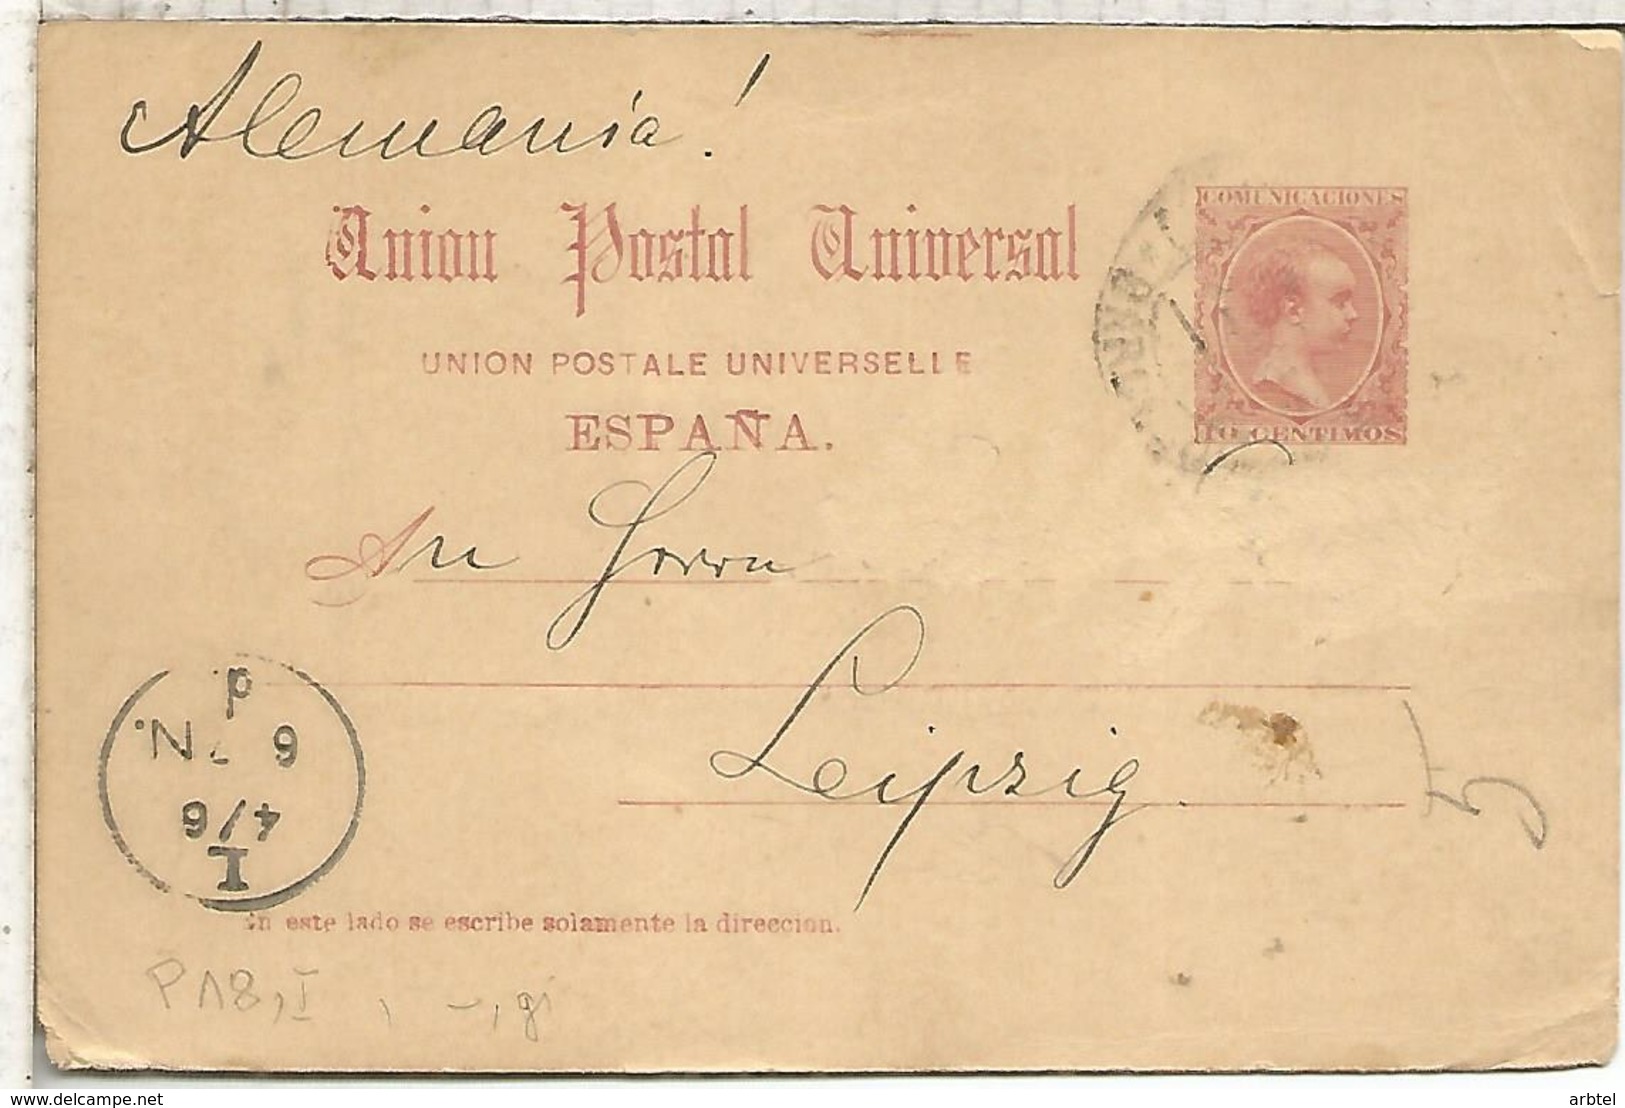 Alemania!
COMUNICACIONES
Union Postal Universal
UNION POSTALE UNIVERSELLE
ESPAÑA.
10 CENTIMOS
An Herrn
Leipzig.
I
4/6
6 7 N.
p
5
En este lado se escribe solamente la direccion.
P18,I , -, gi
arbtel